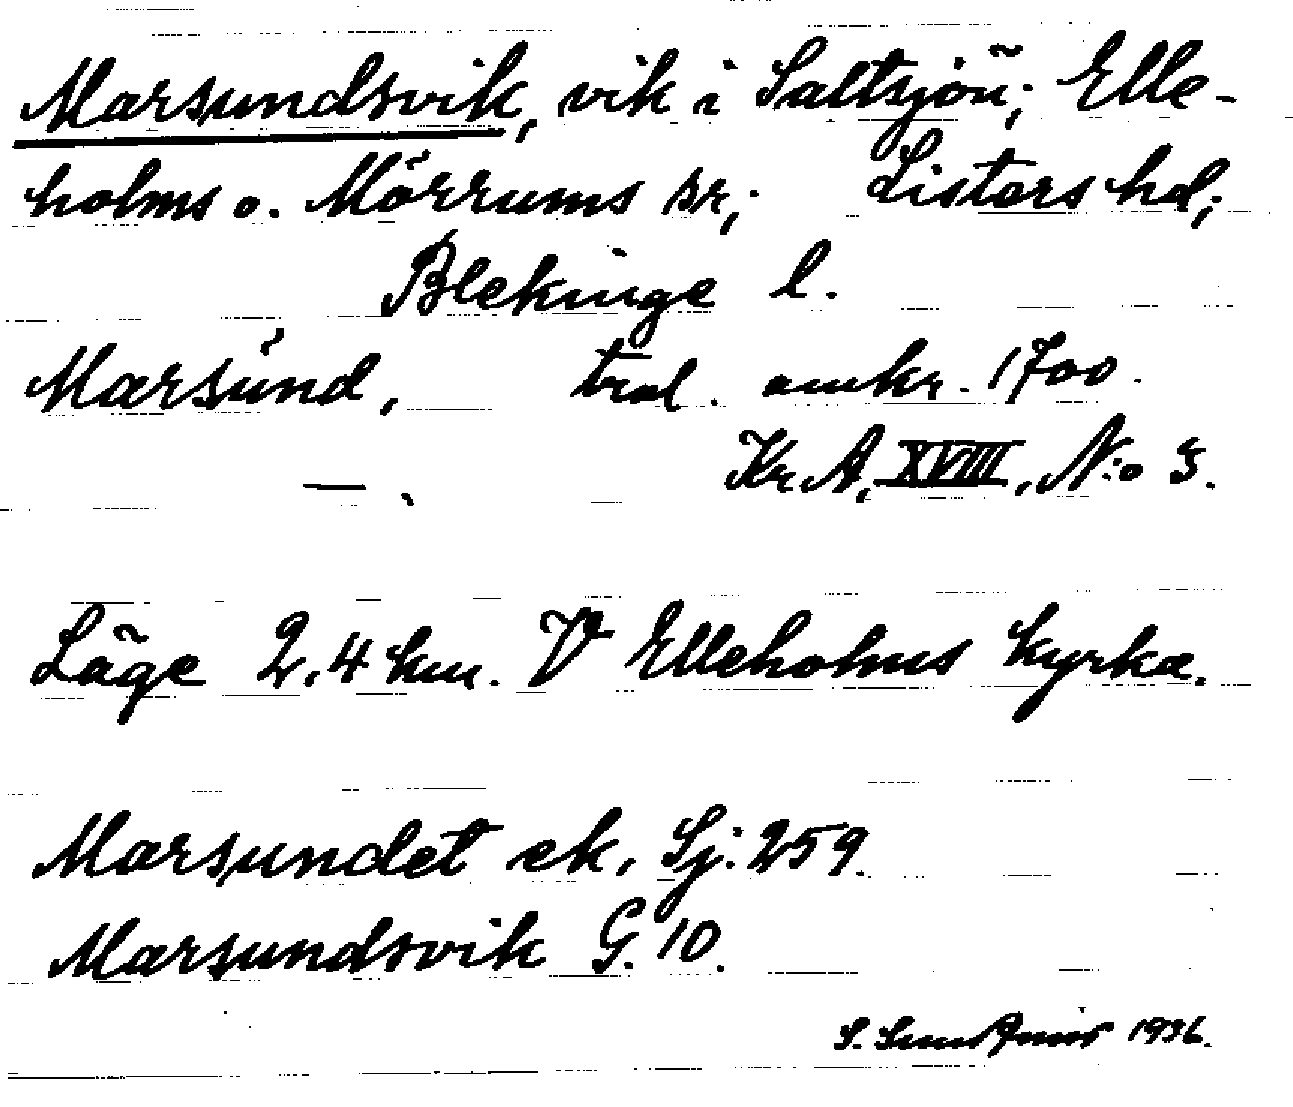 Marsundsvik, vik i Saltsjön; Elle-
holms o. Mörrums sr; Listers hd;
Blekinge l.
Marsund, trol. omkr. 1700.
— . Kr. A, XVIII, N:o 3.
Läge 2.4 km. V Elleholms kyrka.
Marsundet ek. Sj: 259.
Marsundsvik G. 10.
S. 1936.